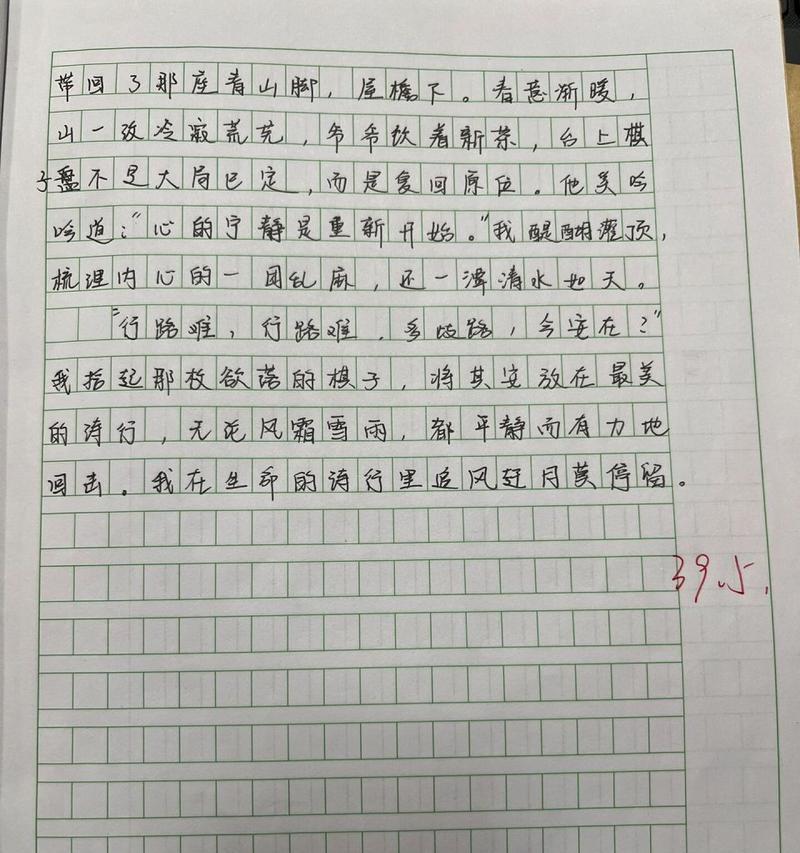 带回了那座青山脚，屋檐下。春意渐暖，
山一改冷寂荒芜，爷爷饮着新茶，台上棋
子盘不是大局已定，而是复回原位。他笑吟
吟道：“心的宁静是重新开始。”我醍醐灌顶，
梳理内心的一团乱麻，还一潭清水如天。
“行路难，行路难，多歧路，今安在？”
我拾起那枚欲落的棋子，将其安放在最美
的诗行，无论风霜雪雨，都平静而有力地
回击。我在生命的诗行里追风赶月莫停留。
39.5.